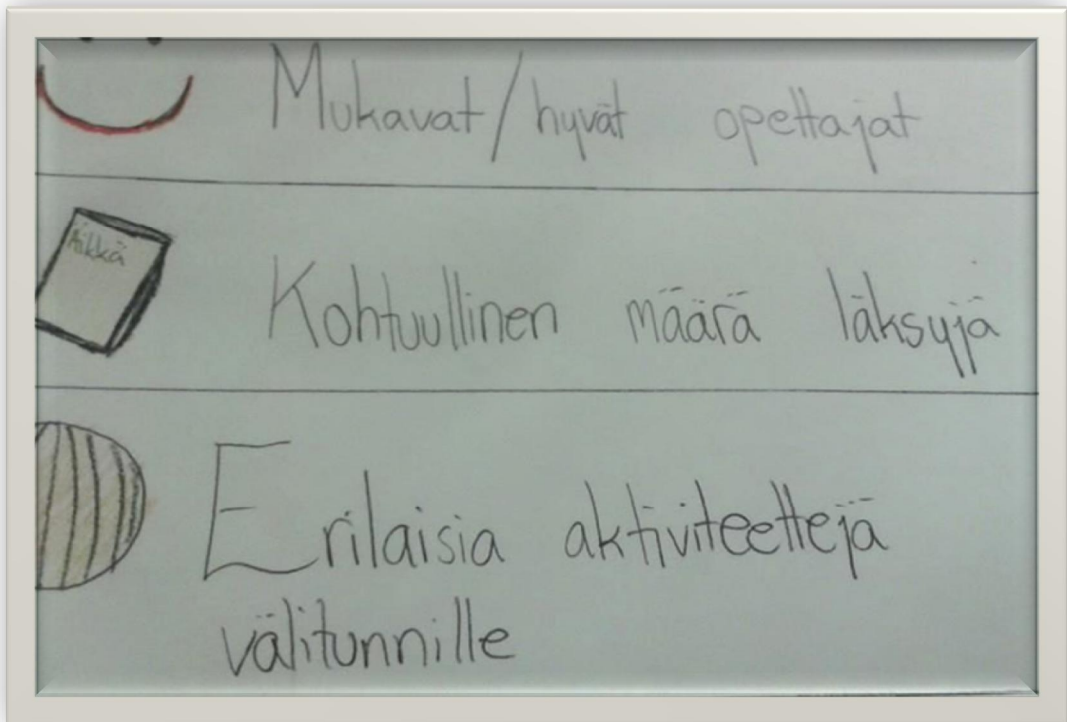 Mukavat/hyvät opettajat
Äikkä
Kohtuullinen määrä läksyjä
Erilaisia aktiviteettejä
välitunnille